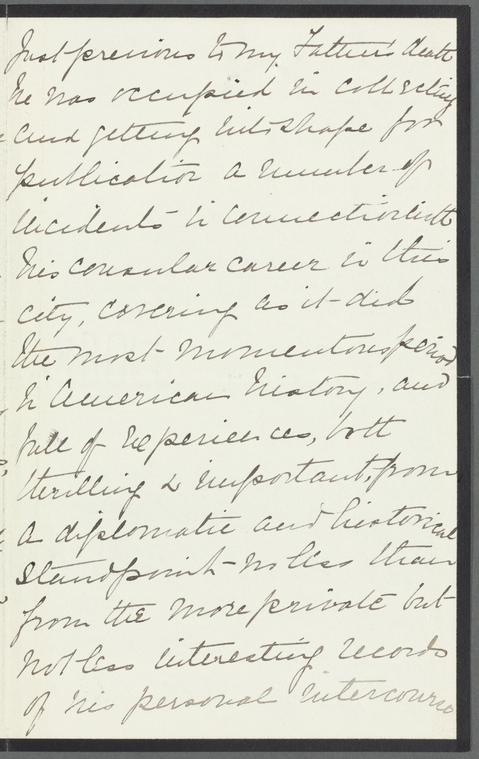 Just previous to my Father's death
he was occupied in collecting
and getting into shape for
publication a number of
incidents in connection with
his consular career in this
city, covering as it did
the most momentous period
in American history, and
full of experiences, both
thrilling & important, from
a diplomatic and historical
standpoint - no less than
from the more private but
not less interesting records
of his personal intercourse